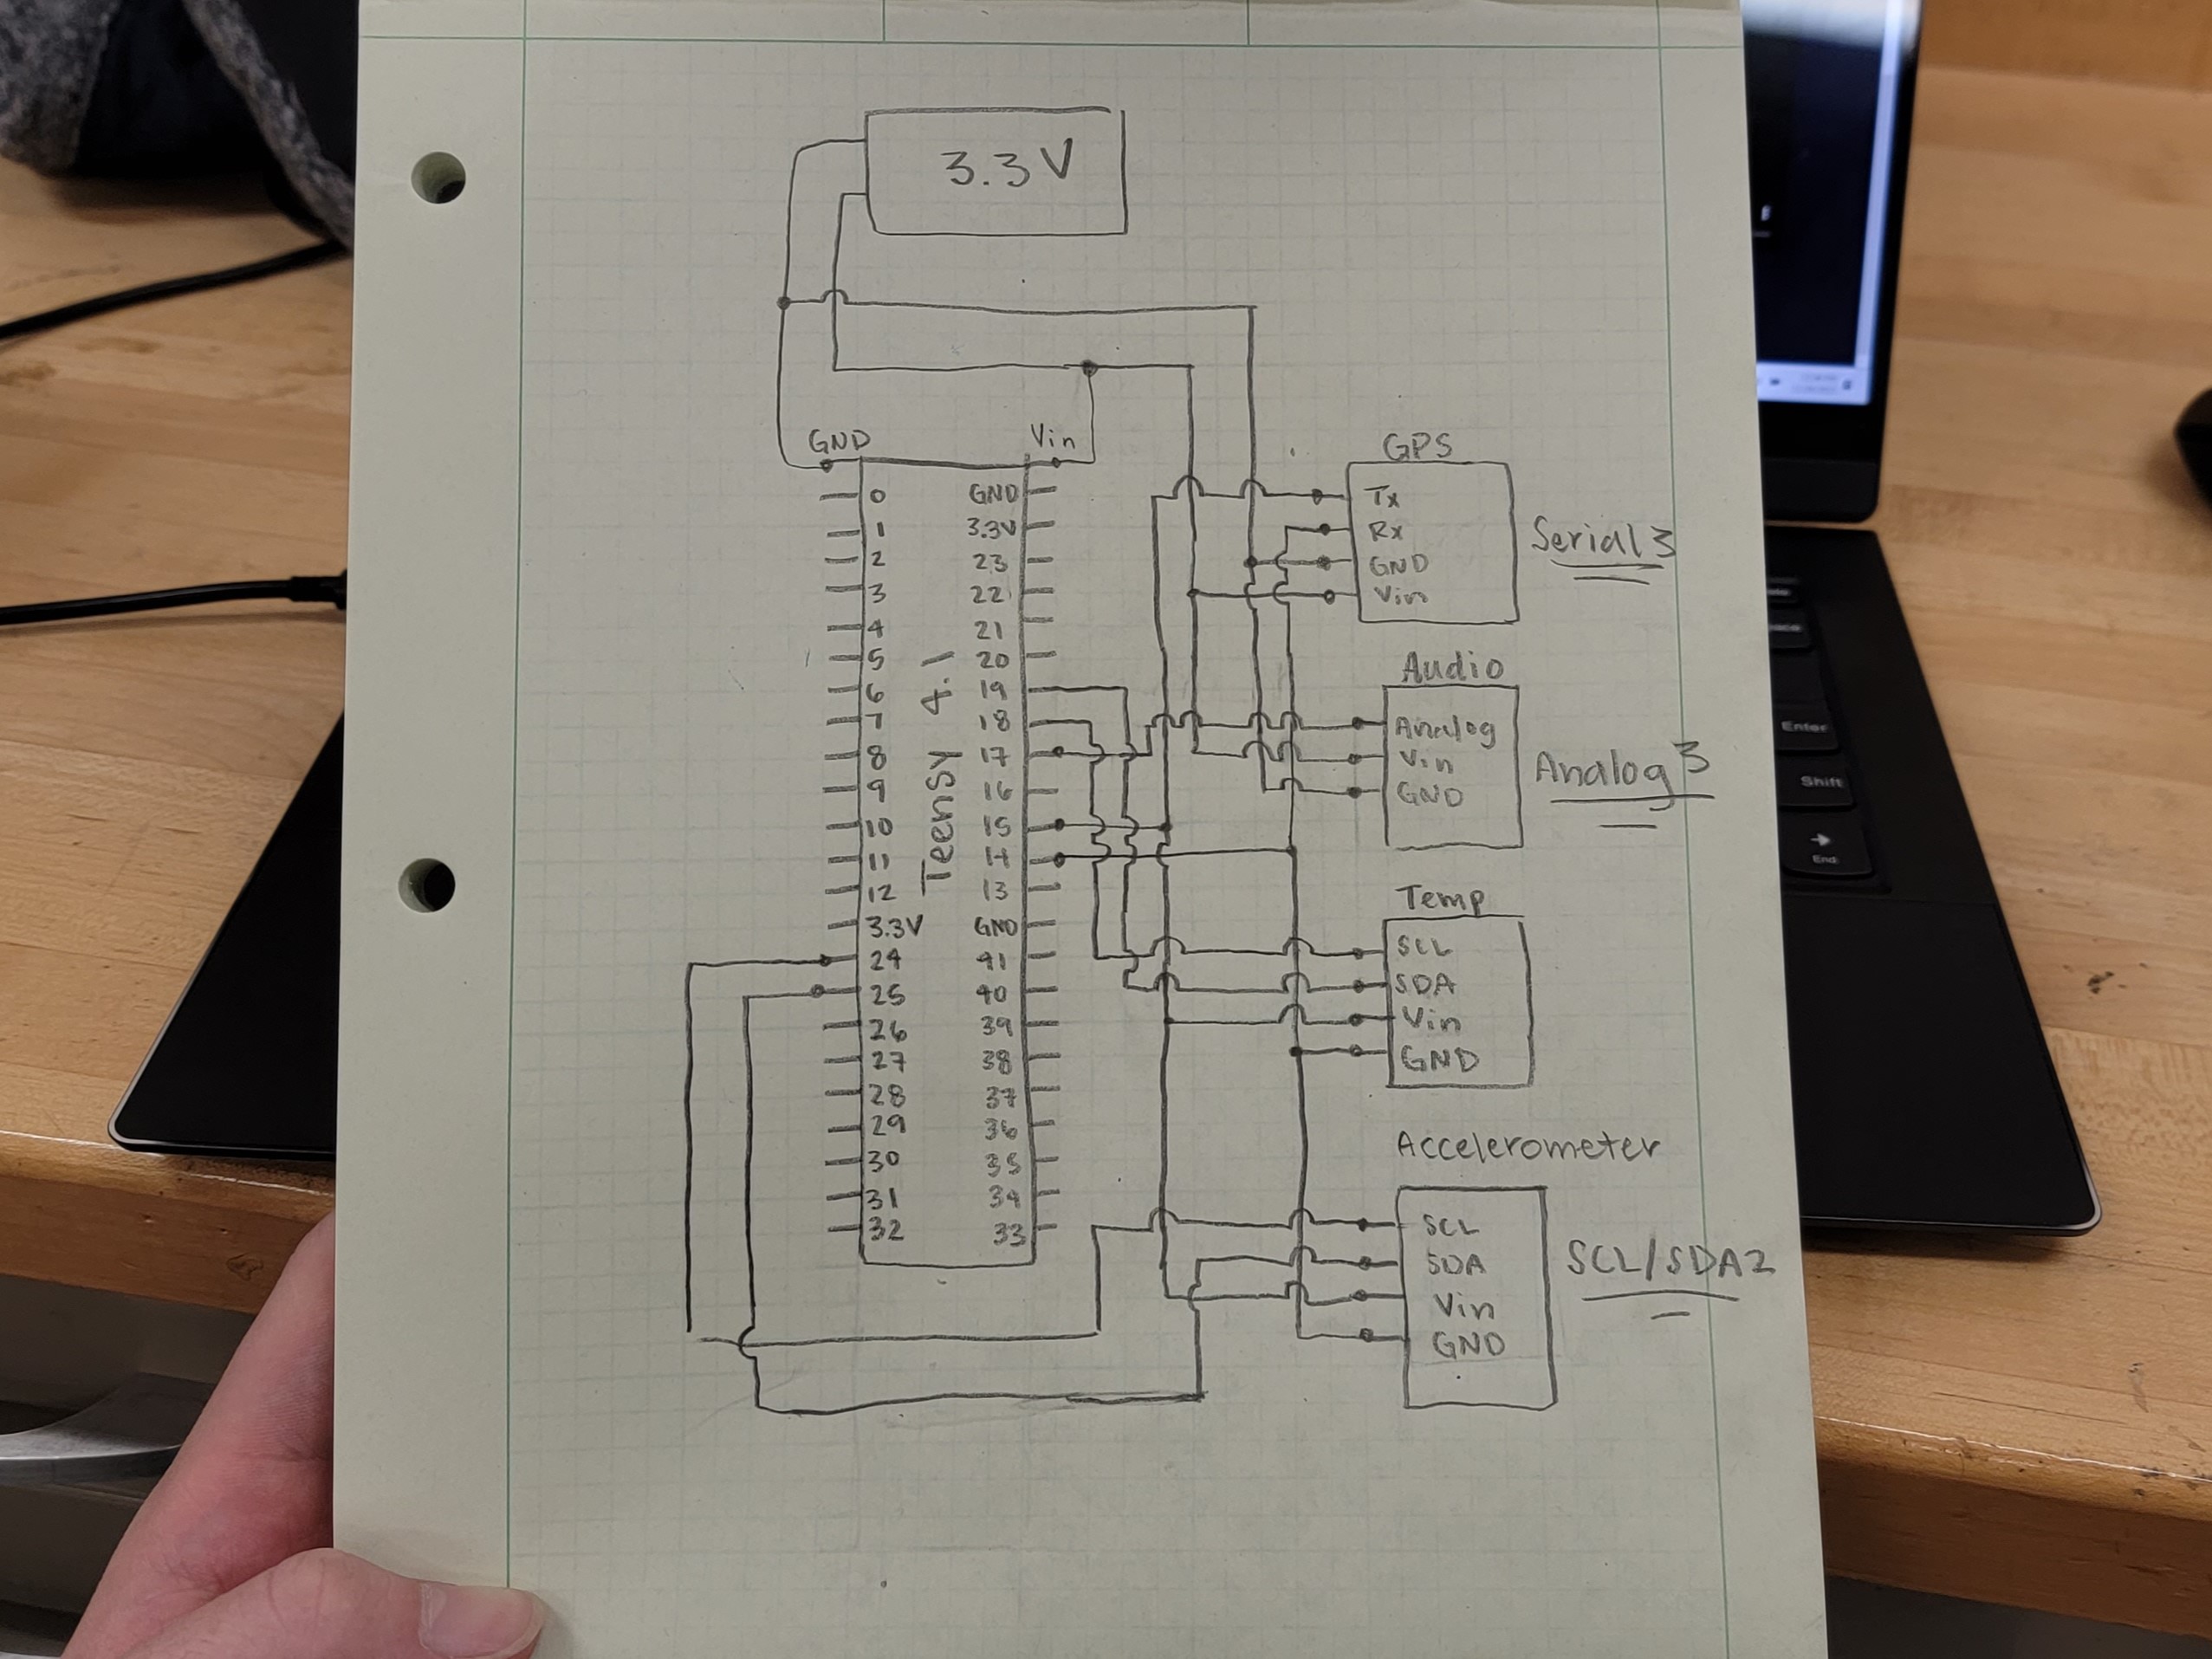 3.3V
GND
Vin
Teensy 4.1
0
1
2
3
4
5
6
7
8
9
10
11
12
3.3V
24
25
26
27
28
29
30
31
32
GND
3.3V
23
22
21
20
19
18
17
16
15
14
13
GND
41
40
39
38
37
36
35
34
33
GPS
Tx
Rx
GND
Vin
Serial3
Audio
Analog
Vin
GND
Analog3
Temp
SCL
SDA
Vin
GND
Accelerometer
SCL
SDA
Vin
GND
SCL/SDA2
Enter
Shift
End